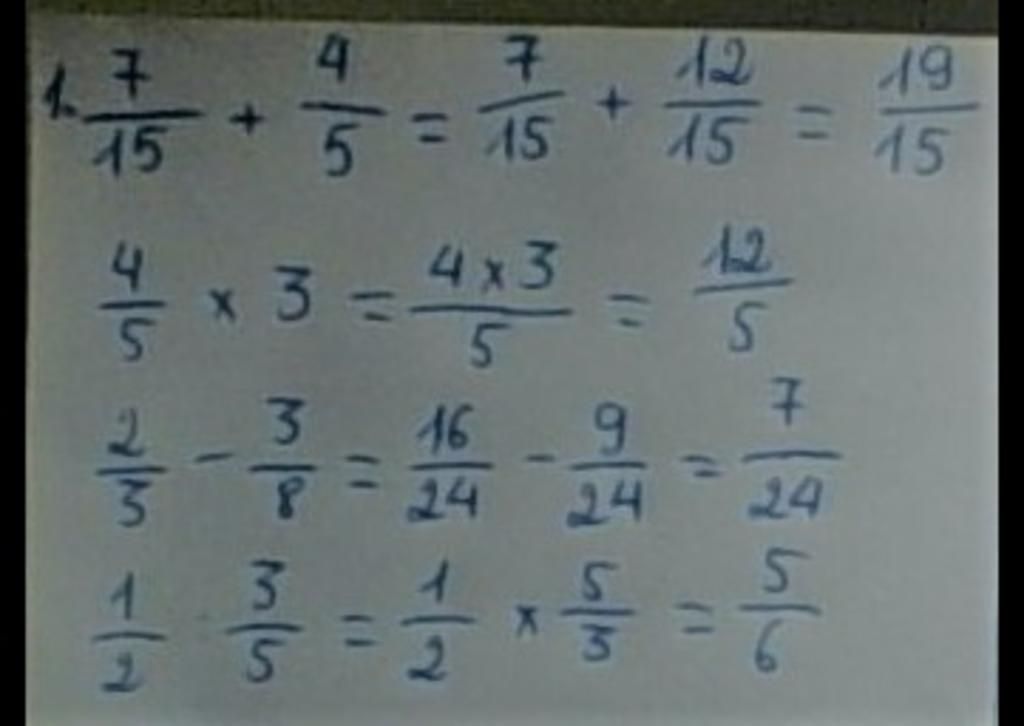 1. 7/15 + 4/5 = 7/15 + 12/15 = 19/15
4/5 × 3 = 4 × 3/5 = 12/5
2/3 - 3/8 = 16/24 - 9/24 = 7/24
1/2 3/5 = 1/2 × 5/3 = 5/6